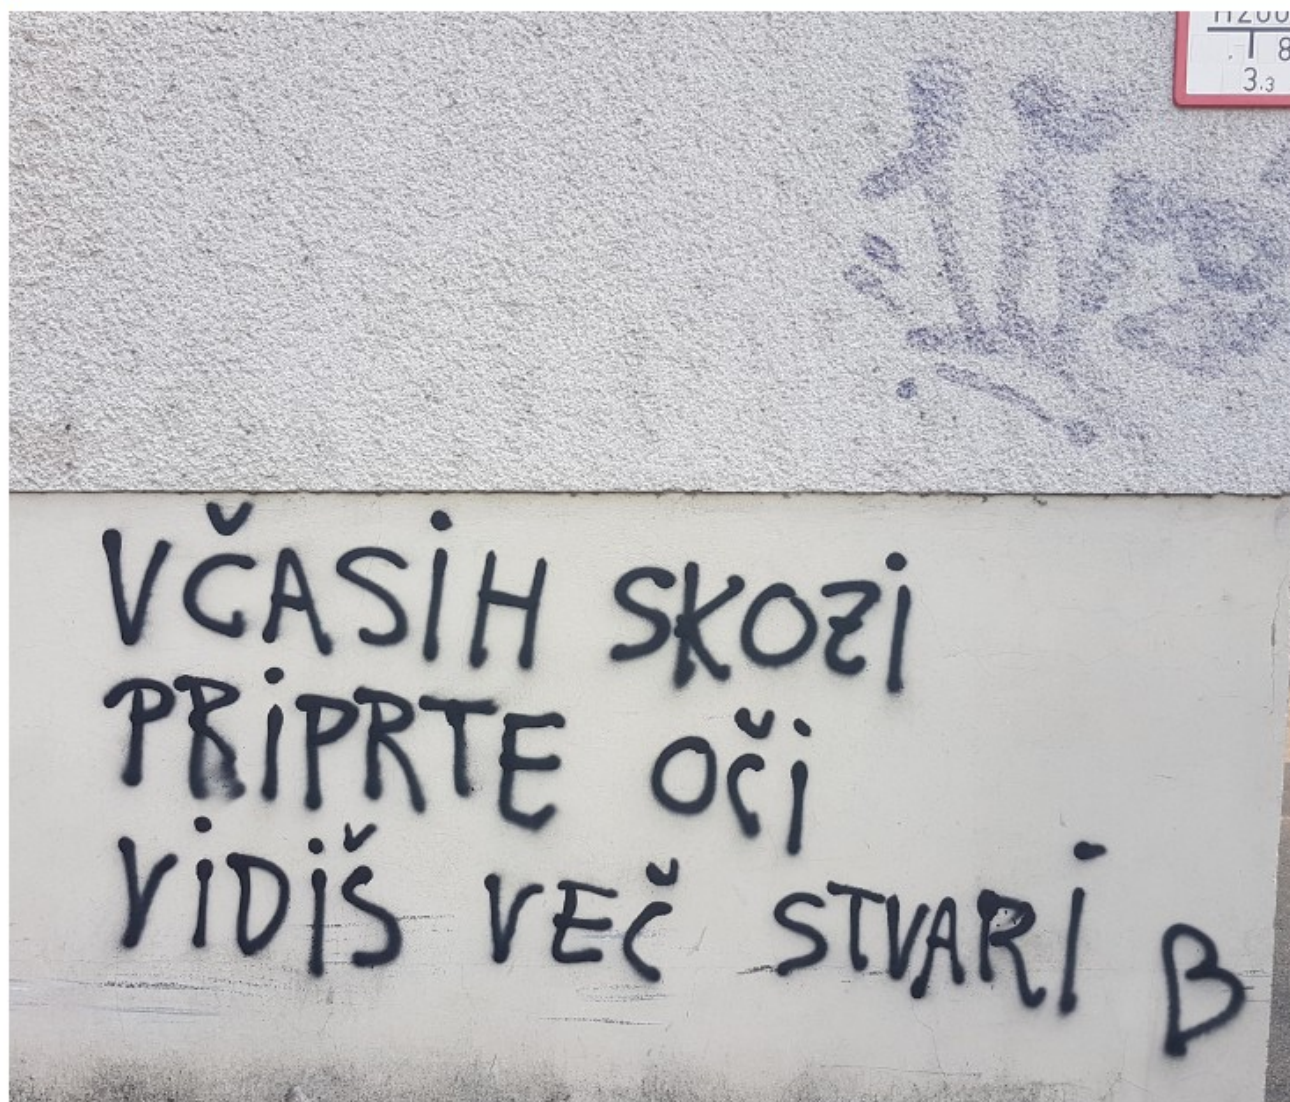 8
3.3
VČASIH SKOZI
PRIPRTE OČI
VIDIŠ VEČ STVARI B